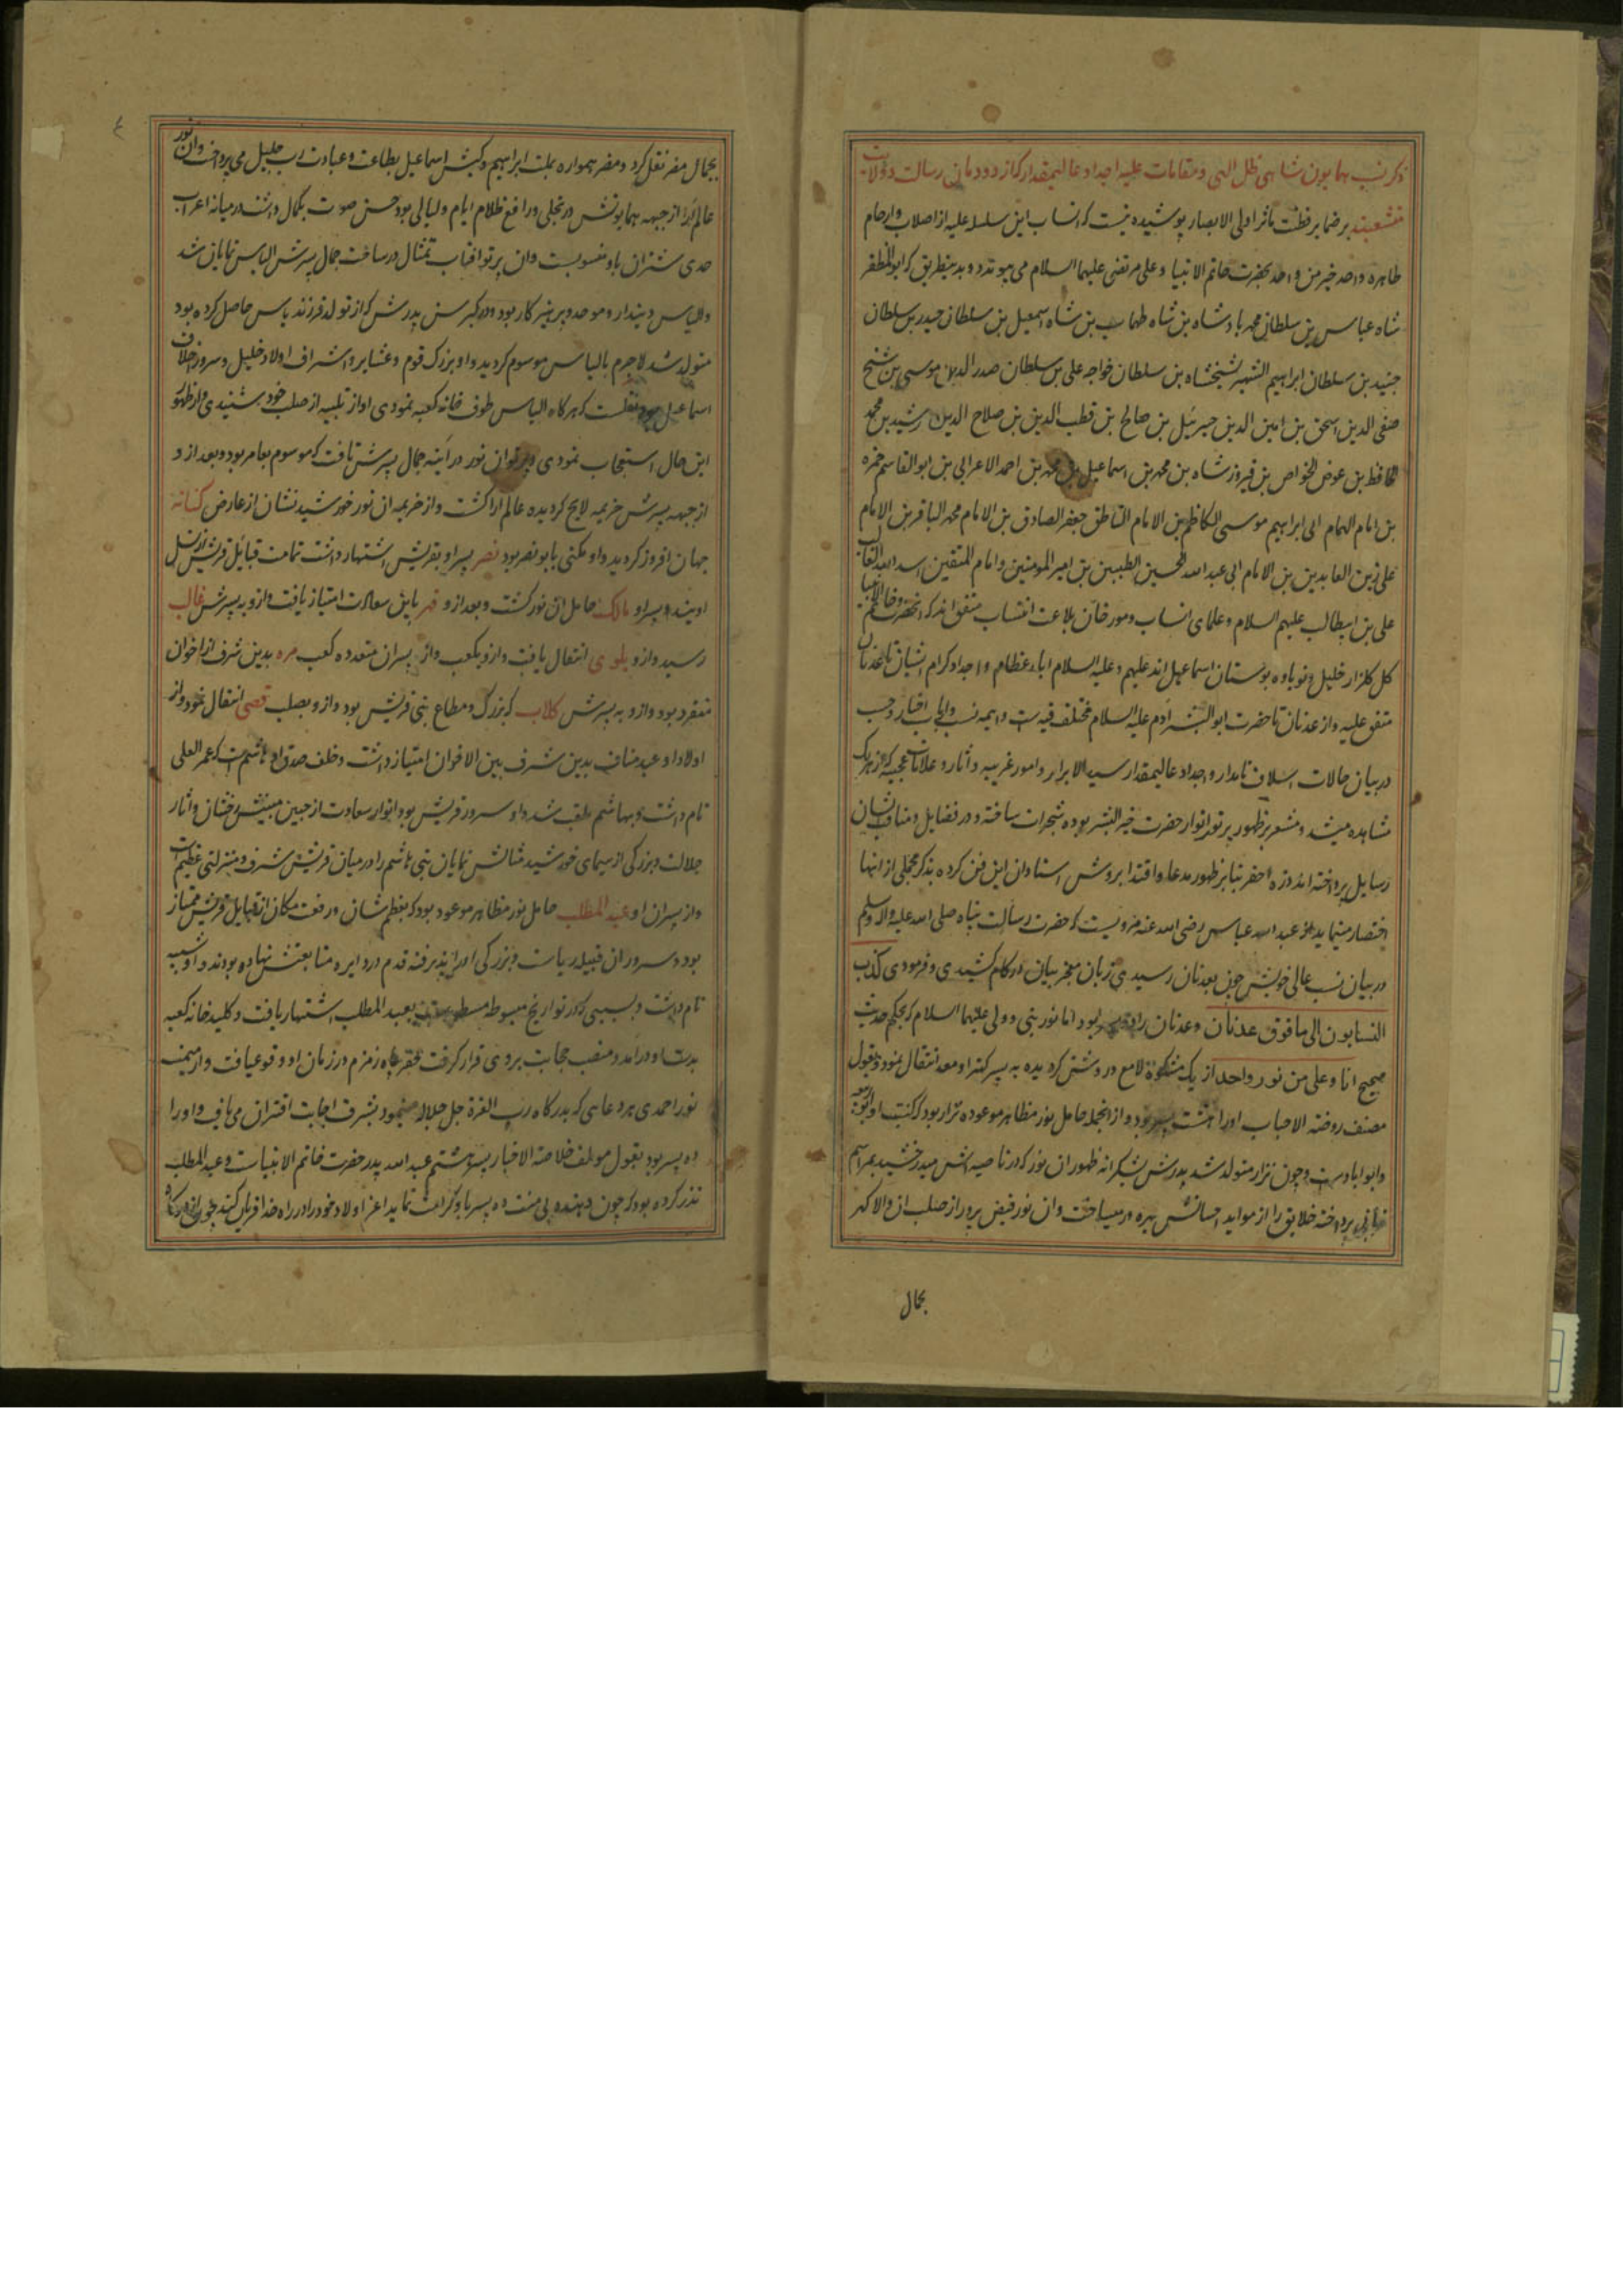 ذکر نسب همایون شاهی ظل الهی و مقامات علیه اجداد عالیمقدار که از دودمان رسالت و ولایت
منشعبند بر ضمایر فطنت ماثر اولی الابصار پوشیده نیست که انساب این سلسله علیه از اصلاب و ارحام
طاهره واحد خیر من واحد بحضرت خاتم الانبیا و علی مرتضی علیهما السلام می پیوندد و بدینطریق که ابوالمظفر
شاه عباس بن سلطان محمد پادشاه بن شاه طهماسب بن شاه اسمعیل بن سلطان حیدر بن سلطان
جنید بن سلطان ابراهیم الشهیر بشیخشاه بن سلطان خواجه علی بن سلطان صدر الدین موسی بن شیخ
صفی الدین اسحق بن امین الدین جبرئیل بن صالح بن قطب الدین بن صلاح الدین رشید بن محمد
الحافظ بن عوض الخواص بن فیروز شاه بن محمد بن اسماعیل بن محمد بن احمد الاعرابی بن ابوالقاسم حمزه
بن امام الهمام ابی ابراهیم موسی الکاظم بن الامام الناطق جعفر الصادق بن الامام محمد الباقر بن الامام
علی زین العابدین بن الامام ابی عبد الله الحسین الطیبین بن امیر المومنین و امام المتقین اسد الله الغالب
علی بن ابیطالب علیهم السلام و علمای انساب و مورخان بلاغت انتساب متفق اند که آنحضرت و خاتم الانبیا
کل گلزار خلیل و نوباوه بوستان اسماعیل اند علیهم و علیه السلام اباء عظام و اجداد کرام ایشان تا عدنان
متفق علیه و از عدنان تا حضرت ابو البشر آدم علیه السلام مختلف فیه است و ایمه نسب و اخبار
در بیان حالات اسلاف نامدار و اجداد عالیمقدار سید الابرار و امور غریبه و آثار و علامات عجیبه که از هر یک
مشاهده میشد و مشعر بر ظهور پرتو انوار حضرت خیر البشر بوده شجرات ساخته و در فضایل و مناقب ایشان
رسایل پرداخته اند ذره احقر بنا بر ظهور مدعا و اقتدا بروش استادان این فن کرده بذکر مجملی از آنها
اختصار مینماید از عبد الله عباس رضی الله عنه مرویست که حضرت رسالت پناه صلی الله علیه و اله وسلم
در بیان نسب عالی خویش چون بعدنان رسیدی زبان معجز بیان در کام کشیدی و فرمودی کذب
النسابون الی ما فوق عدنان و عدنان را پسر بود اما نور نبی و ولی علیهما السلام که بحکم حدیث
صحیح انا و علی من نور واحد از یک مشکوة لامع و روشن گردیده به پسر کهتر او معد انتقال نمود و بقول
مصنف روضة الاحباب او را هشت پسر بود و از انجمله حامل نور مظاهر موعوده نزار بود که کنیت او
و ابو ایاد است و چون نزار متولد شد پدرش بشکرانه ظهور ان نور که در ناصیه اش میدرخشید بمراسم
قربانی پرداخته خلایق را از مواید احسانش بهره ور میساخت و ان نور فیض پرور از صلب ان والا گهر
بجمال
بجمال مضر نقل کرد و مضر همواره بملت ابراهیم و کیش اسماعیل بطاعت و عبادت رب جلیل می پرداخت و ان نور
عالم آرا از جبهه همایونش در تجلی و رافع ظلام ایام و لیالی بود حسن صوت بکمال داشت و در میانه اعراب
حدی شتران باو منسوبست و ان پرتو افتاب تمثال در ساحت جمال پسرش الیاس نمایان شد
و الیاس دیندار و موحد و پرهیزکار بود و در کبر سن پدرش که از تولد فرزند یاس حاصل کرده بود
متولد شد لاجرم بالیاس موسوم گردید و او بزرگ قوم و عشایر و اشراف اولاد خلیل و سرور اخلاف
اسماعیل بود نقلست که هرگاه الیاس طوف خانه کعبه نمودی اواز تلبیه از صلب خود شنیدی و از ظهور
این حال استعجاب نمودی و پرتو ان نور در آینه جمال پسرش تافت که موسوم بعامر بود و بعد از و
از جبهه پسرش خزیمه لایح گردیده عالم آرا گشت و از خزیمه ان نور خورشید نشان از عارض کنانه
جهان افروز گردید و او مکنی بابو نضر بود نضر پسر او بقریش اشتهار داشت تمامت قبایل قریش از نسل
اویند و پسر او مالک حامل ان نور گشت و بعد از و فهر باین سعادت امتیاز یافت و از و به پسرش غالب
رسید و از و بلوی انتقال یافت و از و بکعب و از پسران متعدده کعب مره بدین شرف از اخوان
متفرد بود و از و به پسرش کلاب که بزرگ و مطاع بنی قریش بود و از و بصلب قصی انتقال نمود و از
اولاد او عبد مناف بدین شرف بین الاخوان امتیاز داشت و خلف صدق او هاشم است که عمر العلی
نام داشت و بهاشم ملقب شد و او سرور قریش بود انوار سعادت از جبین مبینش رخشان و آثار
جلالت و بزرگی از سیمای خورشید مثالش نمایان بنی هاشم را در میان قریش شرف و منزلتی عظیم است
و از پسران او عبد المطلب حامل نور مظاهر موعود بود که بعظم شان و رفعت مکان از قبایل قریش ممتاز
بود و سروران قبیله ریاست و بزرگی او را پذیرفته قدم در دایره متابعتش نهاده بودند و او شیبه
نام داشت و بسببی که در تواریخ مبسوطه مسطور است بعبد المطلب اشتهار یافت و کلید خانه کعبه
بدست او درآمد و منصب حجابت بر وی قرار گرفت حفر چاه زمزم در زمان او وقوع یافت و از میمنت
نور احمدی هر دعایی که بدرگاه رب العزة جل جلاله مینمود بشرف اجابت اقتران می یافت و او را
ده پسر بود بقول مولف خلاصة الاخبار پسر هشتم عبد الله پدر حضرت خاتم الانبیاست و عبد المطلب
نذر کرده بود که چون دهنده بی منت ده پسر باو کرامت نماید اعز اولاد خود را در راه خدا قربان کند چون از درگاه